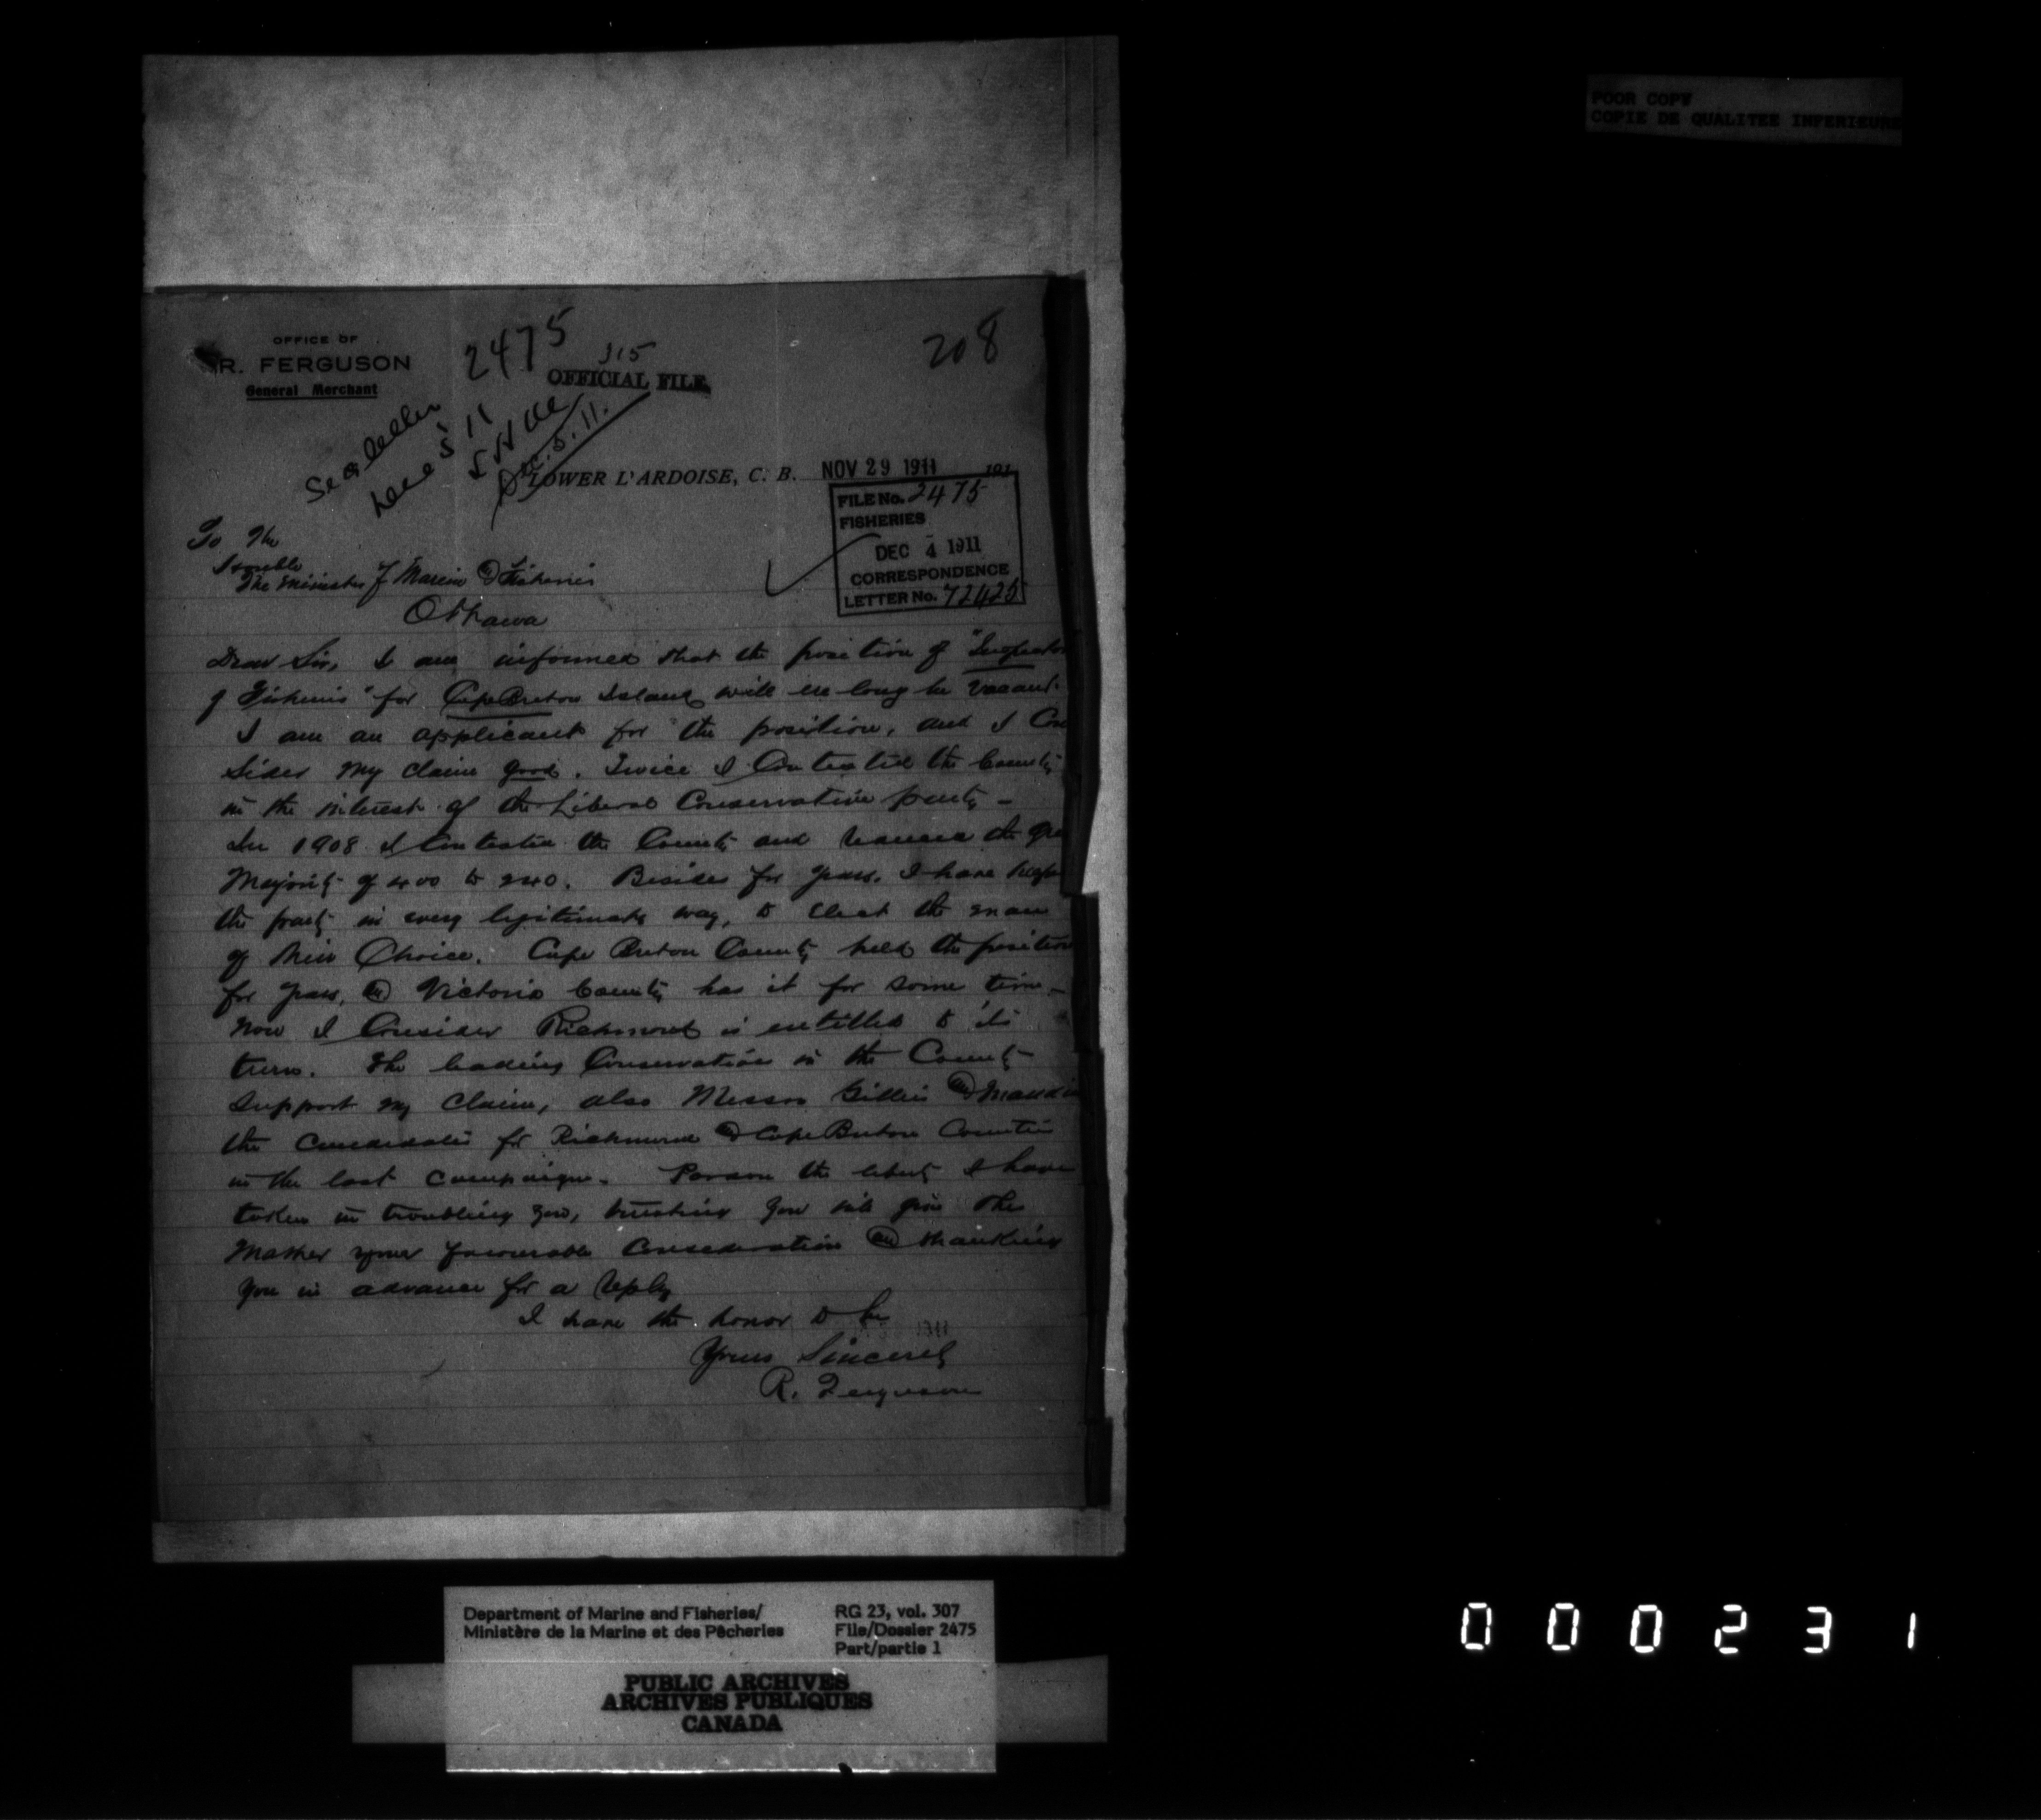 POOR COPY
COPIE DE QUALITEE INFERIEURE
OFFICE OF
R. FERGUSON
General Merchant
2475
208
315
OFFICIAL FILE
Dec. 5. 11.
LOWER L'ARDOISE, C. B. NOV 29 1911 191
FILE No. 2475
FISHERIES
DEC 4 1911
CORRESPONDENCE
LETTER No. 72425
To The
Honble
The Minister of Marine and Fisheries
Ottawa
Dear Sir, I am informed that the position of "Inspector
of Fisheries" for Cape Breton Island will ere long be vacant.
I am an applicant for the position, and I Con
sider my claim good. Twice I Contested the County
in the interest of the Liberal Conservative party -
In 1908 I Contested the County and reduced the
Majority of 400 to 240. Besides for years, I have
the party in every legitimate way, to elect the man
of their Choice. Cape Breton County held the position
for years, and Victoria County has it for some time -
Now I Consider Richmond is entitled to its
turn. The leading Conservatives in the County
support my claim, also Messrs Gillies and
the Candidates for Richmond and Cape Breton Counties
in the last Campaign. Pardon the liberty I have
taken in troubling you, trusting you will give the
Matter your favourable Consideration and thanking
you in advance for a reply
I have the honor to be
Yours Sincerely
R. Ferguson
Department of Marine and Fisheries/
Ministère de la Marine et des Pêcheries
RG 23, vol. 307
File/Dossier 2475
Part/partie 1
PUBLIC ARCHIVES
ARCHIVES PUBLIQUES
CANADA
000231